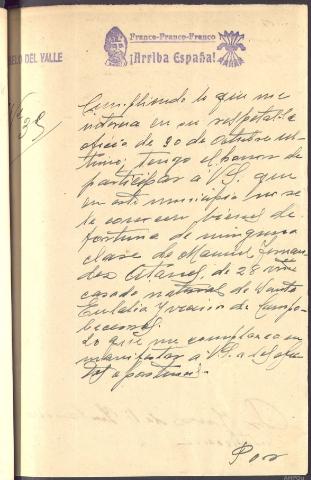 Franco-Franco-Franco
¡Arriba España!
ELO DEL VALLE
Cumpliendo lo que me
interesa en su respetable
oficio de 20 de Octubre ul-
timo, tengo el honor de
participar a V.S. que
en este municipio no se
le conocen bienes de
fortuna de ninguna
clase de Manuel Fernan
dez de 28 años
casado natural de Santa
Eulalia y vecino de
Lo que me complazco en
manifestar a V.S. a los efec
tos oportunos.
Por